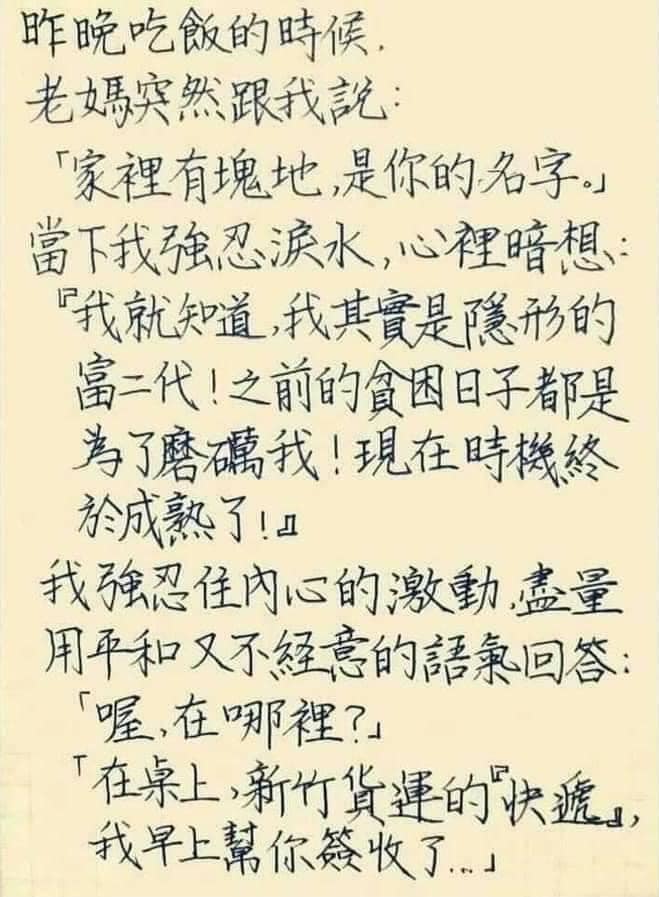 昨晚吃飯的時候,
老媽突然跟我說:
「家裡有塊地,是你的名字。」
當下我強忍淚水,心裡暗想:
『我就知道,我其實是隱形的
富二代!之前的貧困日子都是
為了磨礪我!現在時機終
於成熟了!』
我強忍住內心的激動,盡量
用平和又不経意的語氣回答:
「喔,在哪裡?」
「在桌上,新竹貨運的『快遞』,
我早上幫你簽收了...」